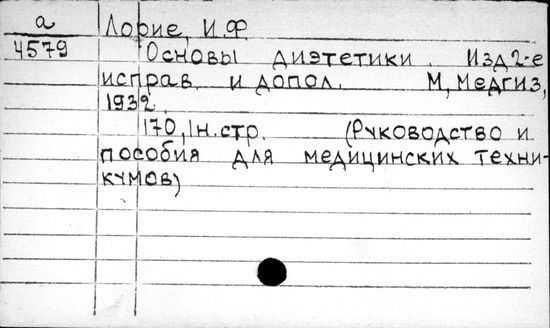 а
4579
Лорие, И.Ф
Основы диэтетики. Изд 2-е
исправ. и допол. М, Медгиз,
1932.
170, 1н. стр. (Руководство и
пособия для медицинских техни-
кумов)